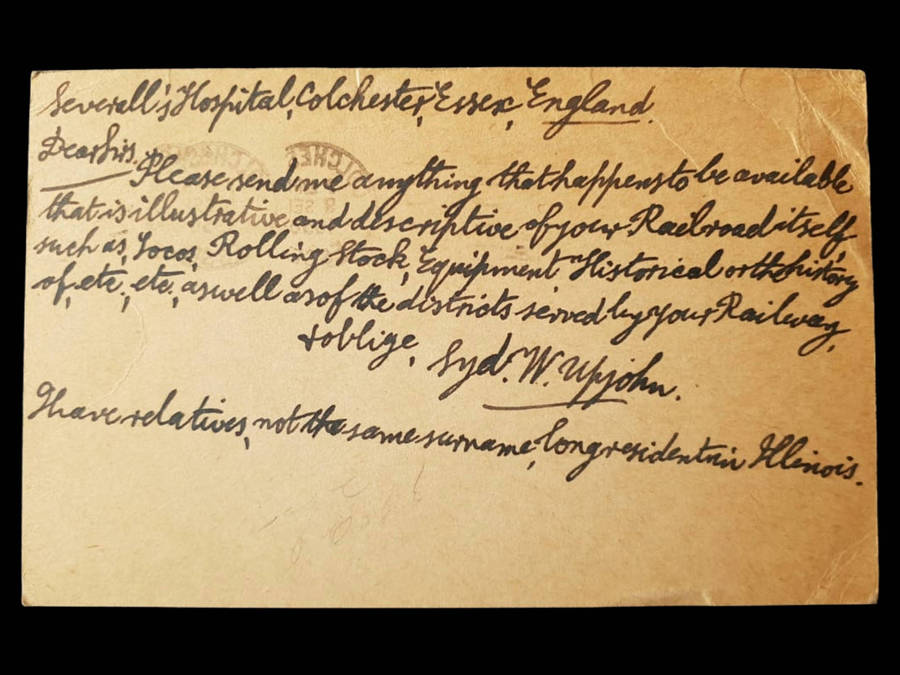 Severall's Hospital, Colchester, Essex, England.
Dear Sirs.
Please send me anything that happens to be available
that is illustrative and descriptive of your Railroad itself
such as, Locos, Rolling Stock, Equipment Historical or the history
of, etc, etc, as well as of the districts served by your Railway,
& oblige, Syd. W. Upjohn.
I have relatives, not the same surname, long resident in Illinois.